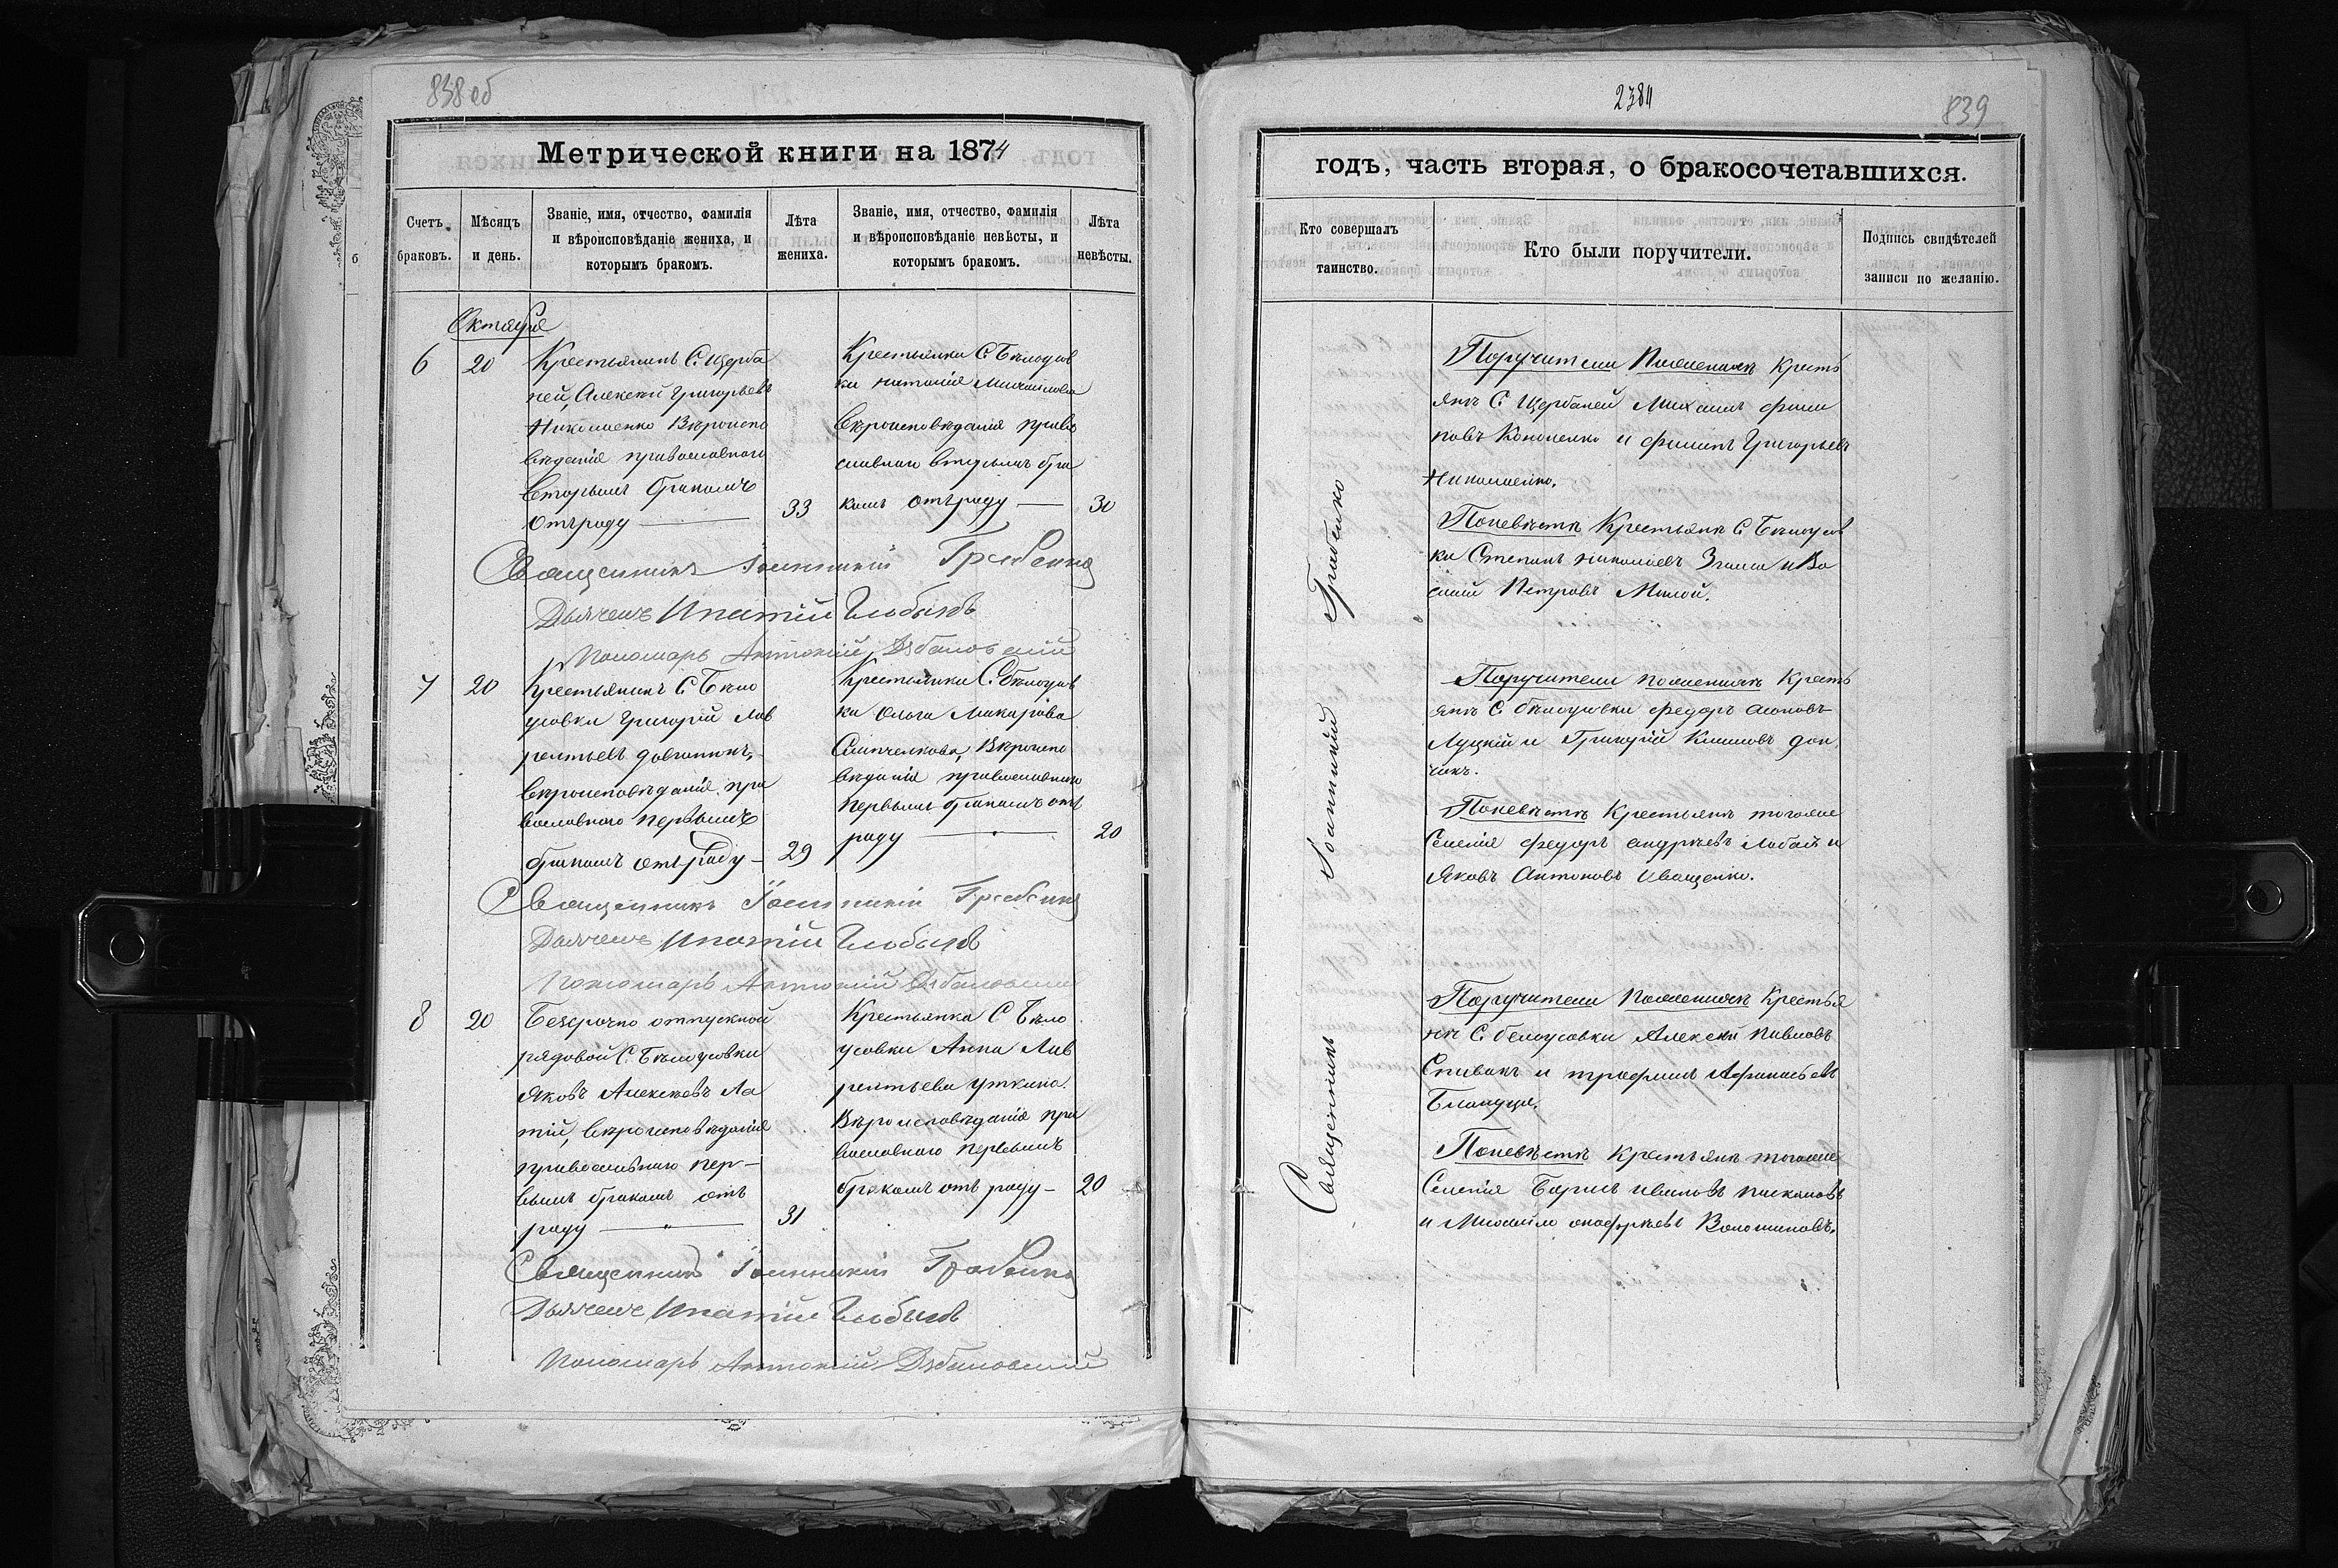 838 об
Метрической книги на 1874
Счетъ браковъ.
Мѣсяцъ и день.
Званіе, имя, отчество, фамилія и вѣроисповѣданіе жениха, и которымъ бракомъ.
Лѣта жениха.
Званіе, имя, отчество, фамилія и вѣроисповѣданіе невѣсты, и которымъ бракомъ.
Лѣта невѣсты.
Октября
6
20
Крестьянинъ С. Щерба
ней, Алексѣй Григорьевъ
Николаенко Вѣроиспо
вѣданія православнаго
Вторымъ бракомъ
отъ роду
33
Крестьянка С Бѣлоусов
ки Наталія Михайлова
Вѣроисповѣданія право
славнаго вторымъ бра
комъ отъ роду
30
Священникъ Іоанникій Гребенко
Дьячекъ Ипатій
Пономарь Антоній
7
20
Крестьянинъ С Бѣло
усовки Григорій Лав
рентьевъ
вѣроисповѣданія пра
вославнаго первымъ
бракомъ отъ роду
29
Крестьянка С. Бѣлоусов
ки Ольга Макарова
Вѣроиспо
вѣданія православнаго
первымъ бракомъ отъ
роду
20
Священникъ Іоанникій Гребенко
Дьячекъ Ипатій
Пономарь Антоній
8
20
Безсрочно отпускной
рядовой С. Бѣлоусовки
Яковъ Алексѣевъ Ла
тій, вѣроисповѣданія
православнаго пер-
вымъ бракомъ отъ
роду
31
Крестьянка С Бѣло
усовки Анна Лав
рентьева Уткина.
Вѣроисповѣданія пра
вославнаго первымъ
бракомъ отъ роду
20
Священникъ Іоанникій Гребенко
Дьячекъ Ипатій
Пономарь Антоній
839
годъ, часть вторая, о бракосочетавшихся.
Кто совершалъ таинство.
Кто были поручители.
Подпись свидѣтелей записи по желанію.
Священникъ Іоанникій Гребенко
Поручители По женихѣ Кресть
янѣ С. Щербаней Михаилъ Филип
повъ Кононенко и Филипъ Григорьевъ
Николаенко.
По невѣстѣ Крестьянѣ С Бѣлоусов
ки Степанъ Николаевъ и Ва
силій Петровъ Милой.
Поручители по женихѣ Кресть
янѣ С. Бѣлоусовки Федоръ
Луцкій и Григорій Климовъ Дон
чакъ.
По невѣстѣ Крестьянѣ того же
Селенія Федоръ Андреевъ Лобай и
Яковъ Антоновъ Иващенко.
Поручители По женихѣ Крестья
нѣ С. белоусовки Алексѣй Павловъ
Спивакъ и Трофимъ Афанасьевъ
По невѣстѣ Крестьянѣ того же
Селенія Борисъ Ивановъ
и Михайло Волошиновъ.